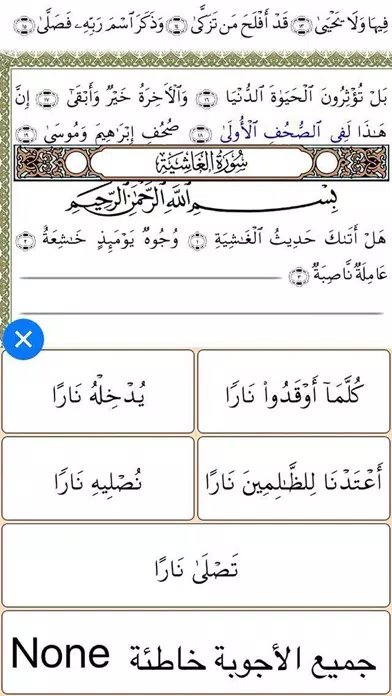 فِيهَا وَلَا يَحْيَىٰ ١٣ قَدْ أَفْلَحَ مَن تَزَكَّىٰ ١٤ وَذَكَرَ ٱسْمَ رَبِّهِۦ فَصَلَّىٰ ١٥
بَلْ تُؤْثِرُونَ ٱلْحَيَوٰةَ ٱلدُّنْيَا ١٦ وَٱلْأَخِرَةُ خَيْرٌ وَأَبْقَىٰٓ ١٧ إِنَّ
هَـٰذَا لَفِى ٱلصُّحُفِ ٱلْأُولَىٰ ١٨ صُحُفِ إِبْرَٰهِيمَ وَمُوسَىٰ ١٩
سُورَةُ الْغَاشِيَةِ
بِسْمِ ٱللَّهِ ٱلرَّحْمَـٰنِ ٱلرَّحِيمِ
هَلْ أَتَىٰكَ حَدِيثُ ٱلْغَـٰشِيَةِ ١ وُجُوهٌ يَوْمَئِذٍ خَـٰشِعَةٌ ٢
عَامِلَةٌ نَّاصِبَةٌ ٣
كُلَّمَآ أَوْقَدُوا۟ نَارًا
يُدْخِلْهُ نَارًا
أَعْتَدْنَا لِلظَّـٰلِمِينَ نَارًا
نُصْلِيهِ نَارًا
تَصْلَىٰ نَارًا
جميع الأجوبة خاطئة None